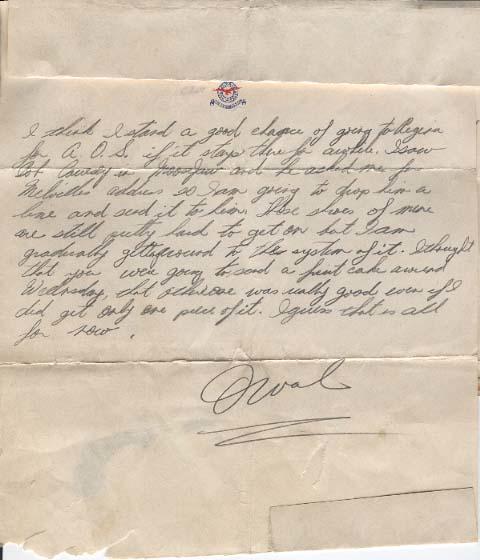 I think I stand a good chance of going to Regina
for A.O.S. if it stays there for awhile. I saw
Bob in Moosejaw and he asked me for
Melville's address so I am going to drop him a
line and send it to him. Those shoes of mine
are still pretty hard to get on but I am
gradually getting around to the system of it. I thought
that you were going to send a fruit cake around
Wednesday, that other one was really good even if I
did get only one piece of it. I guess that is all
for now.
Orval